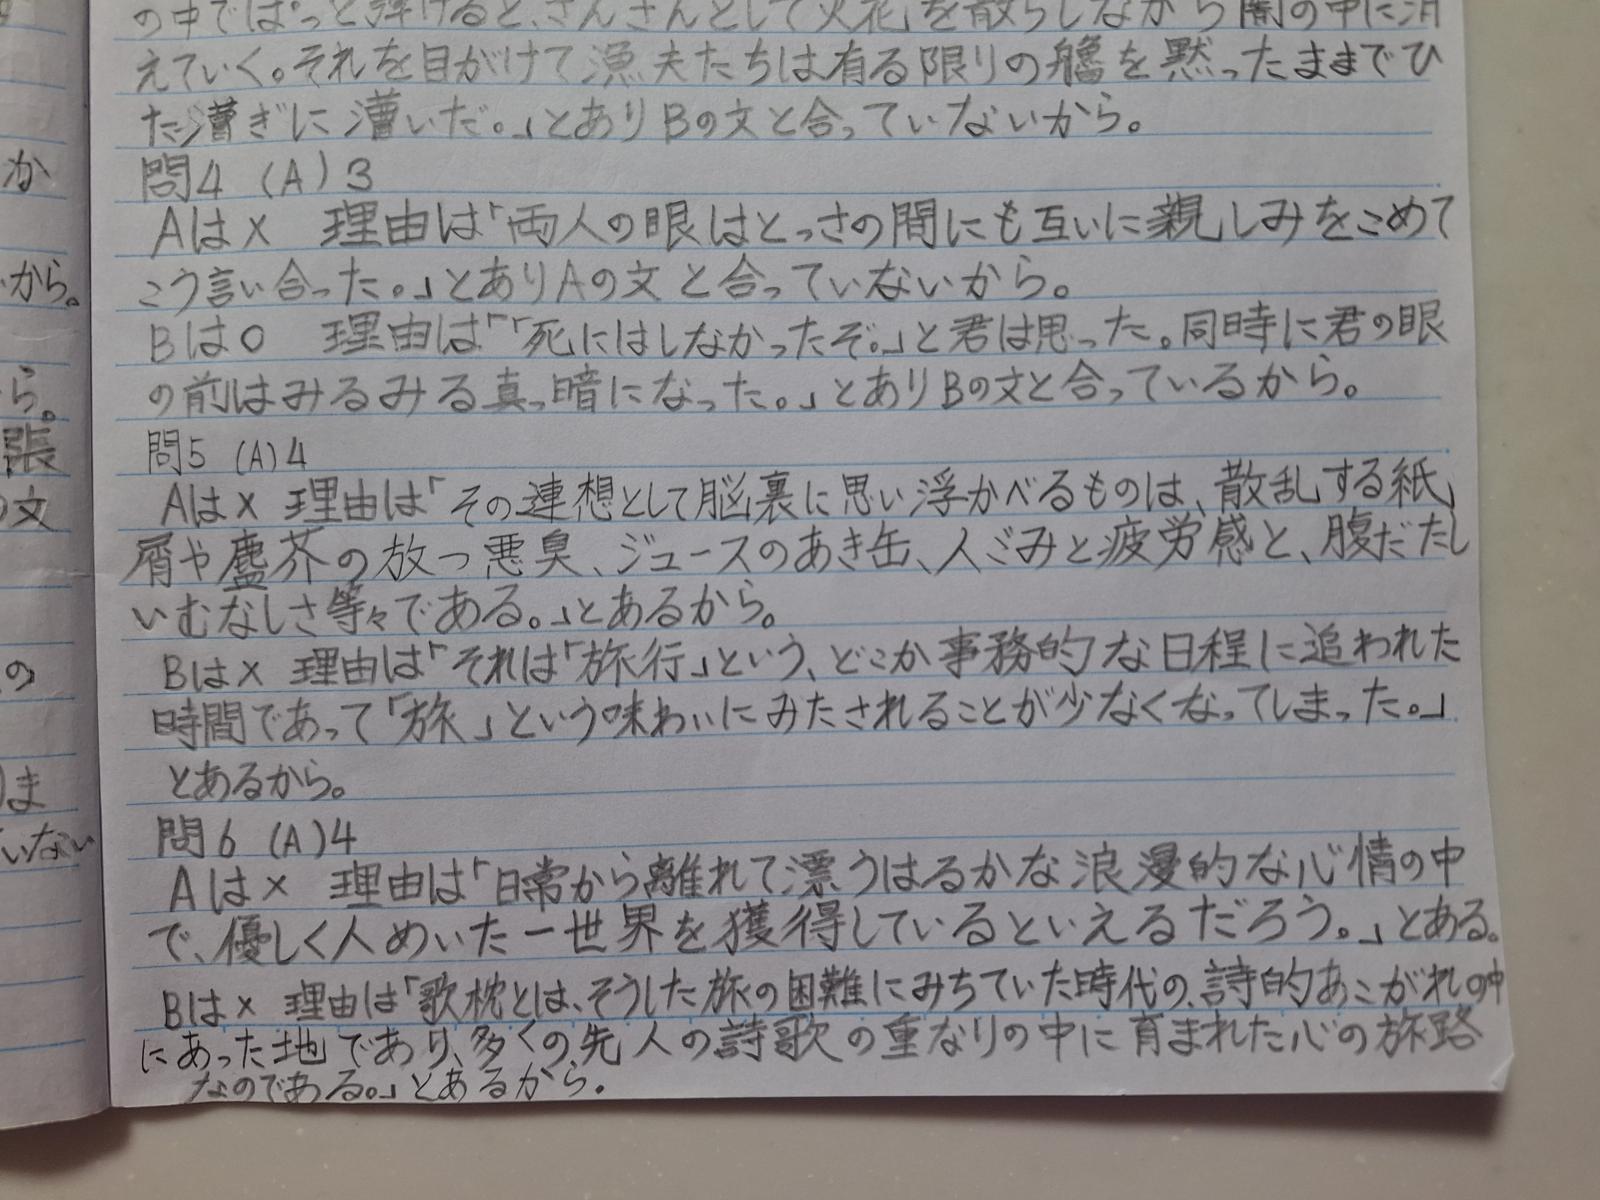 の中でぱっと弾けると、さんさんとして火花を散らしながら闇の中に消
えていく。それを目がけて漁夫たちは有る限りの艪を黙ったままでひ
た漕ぎに漕いだ。」とありBの文と合っていないから。
問4 (A)3
Aは× 理由は「両人の眼はとっさの間にも互いに親しみをこめて
こう言い合った。」とありAの文と合っていないから。
Bは○ 理由は「「死にはしなかったぞ。」と君は思った。同時に君の眼
の前はみるみる真っ暗になった。」とありBの文と合っているから。
問5 (A)4
Aは× 理由は「その連想として脳裏に思い浮かべるものは、散乱する紙
屑や塵芥の放つ悪臭、ジュースのあき缶、人ごみと疲労感と、腹だたし
いむなしさ等々である。」とあるから。
Bは× 理由は「それは「旅行」という、どこか事務的な日程に追われた
時間であって「旅」という味わいにみたされることが少なくなってしまった。」
とあるから。
問6 (A)4
Aは× 理由は「日常から離れて漂うはるかな浪漫的な心情の中
で、優しく人めいた一世界を獲得しているといえるだろう。」とある。
Bは× 理由は「歌枕とは、そうした旅の困難にみちていた時代の、詩的あこがれの中
にあった地であり、多くの先人の詩歌の重なりの中に育まれた心の旅路
なのである。」とあるから。
か
から。
ら。
張
の文
の
ま
いない